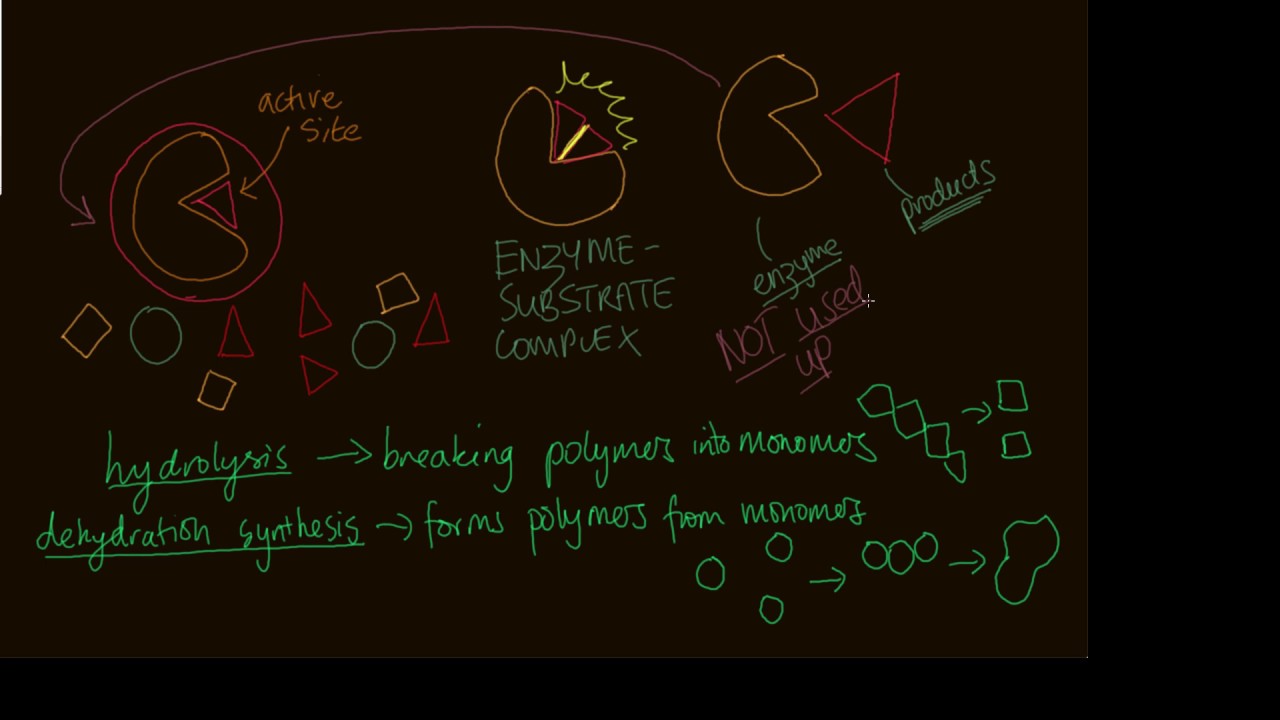 active
site
ENZYME-
SUBSTRATE
COMPLEX
products
enzyme
NOT used
up
hydrolysis → breaking polymers into monomers
dehydration synthesis → forms polymers from monomers